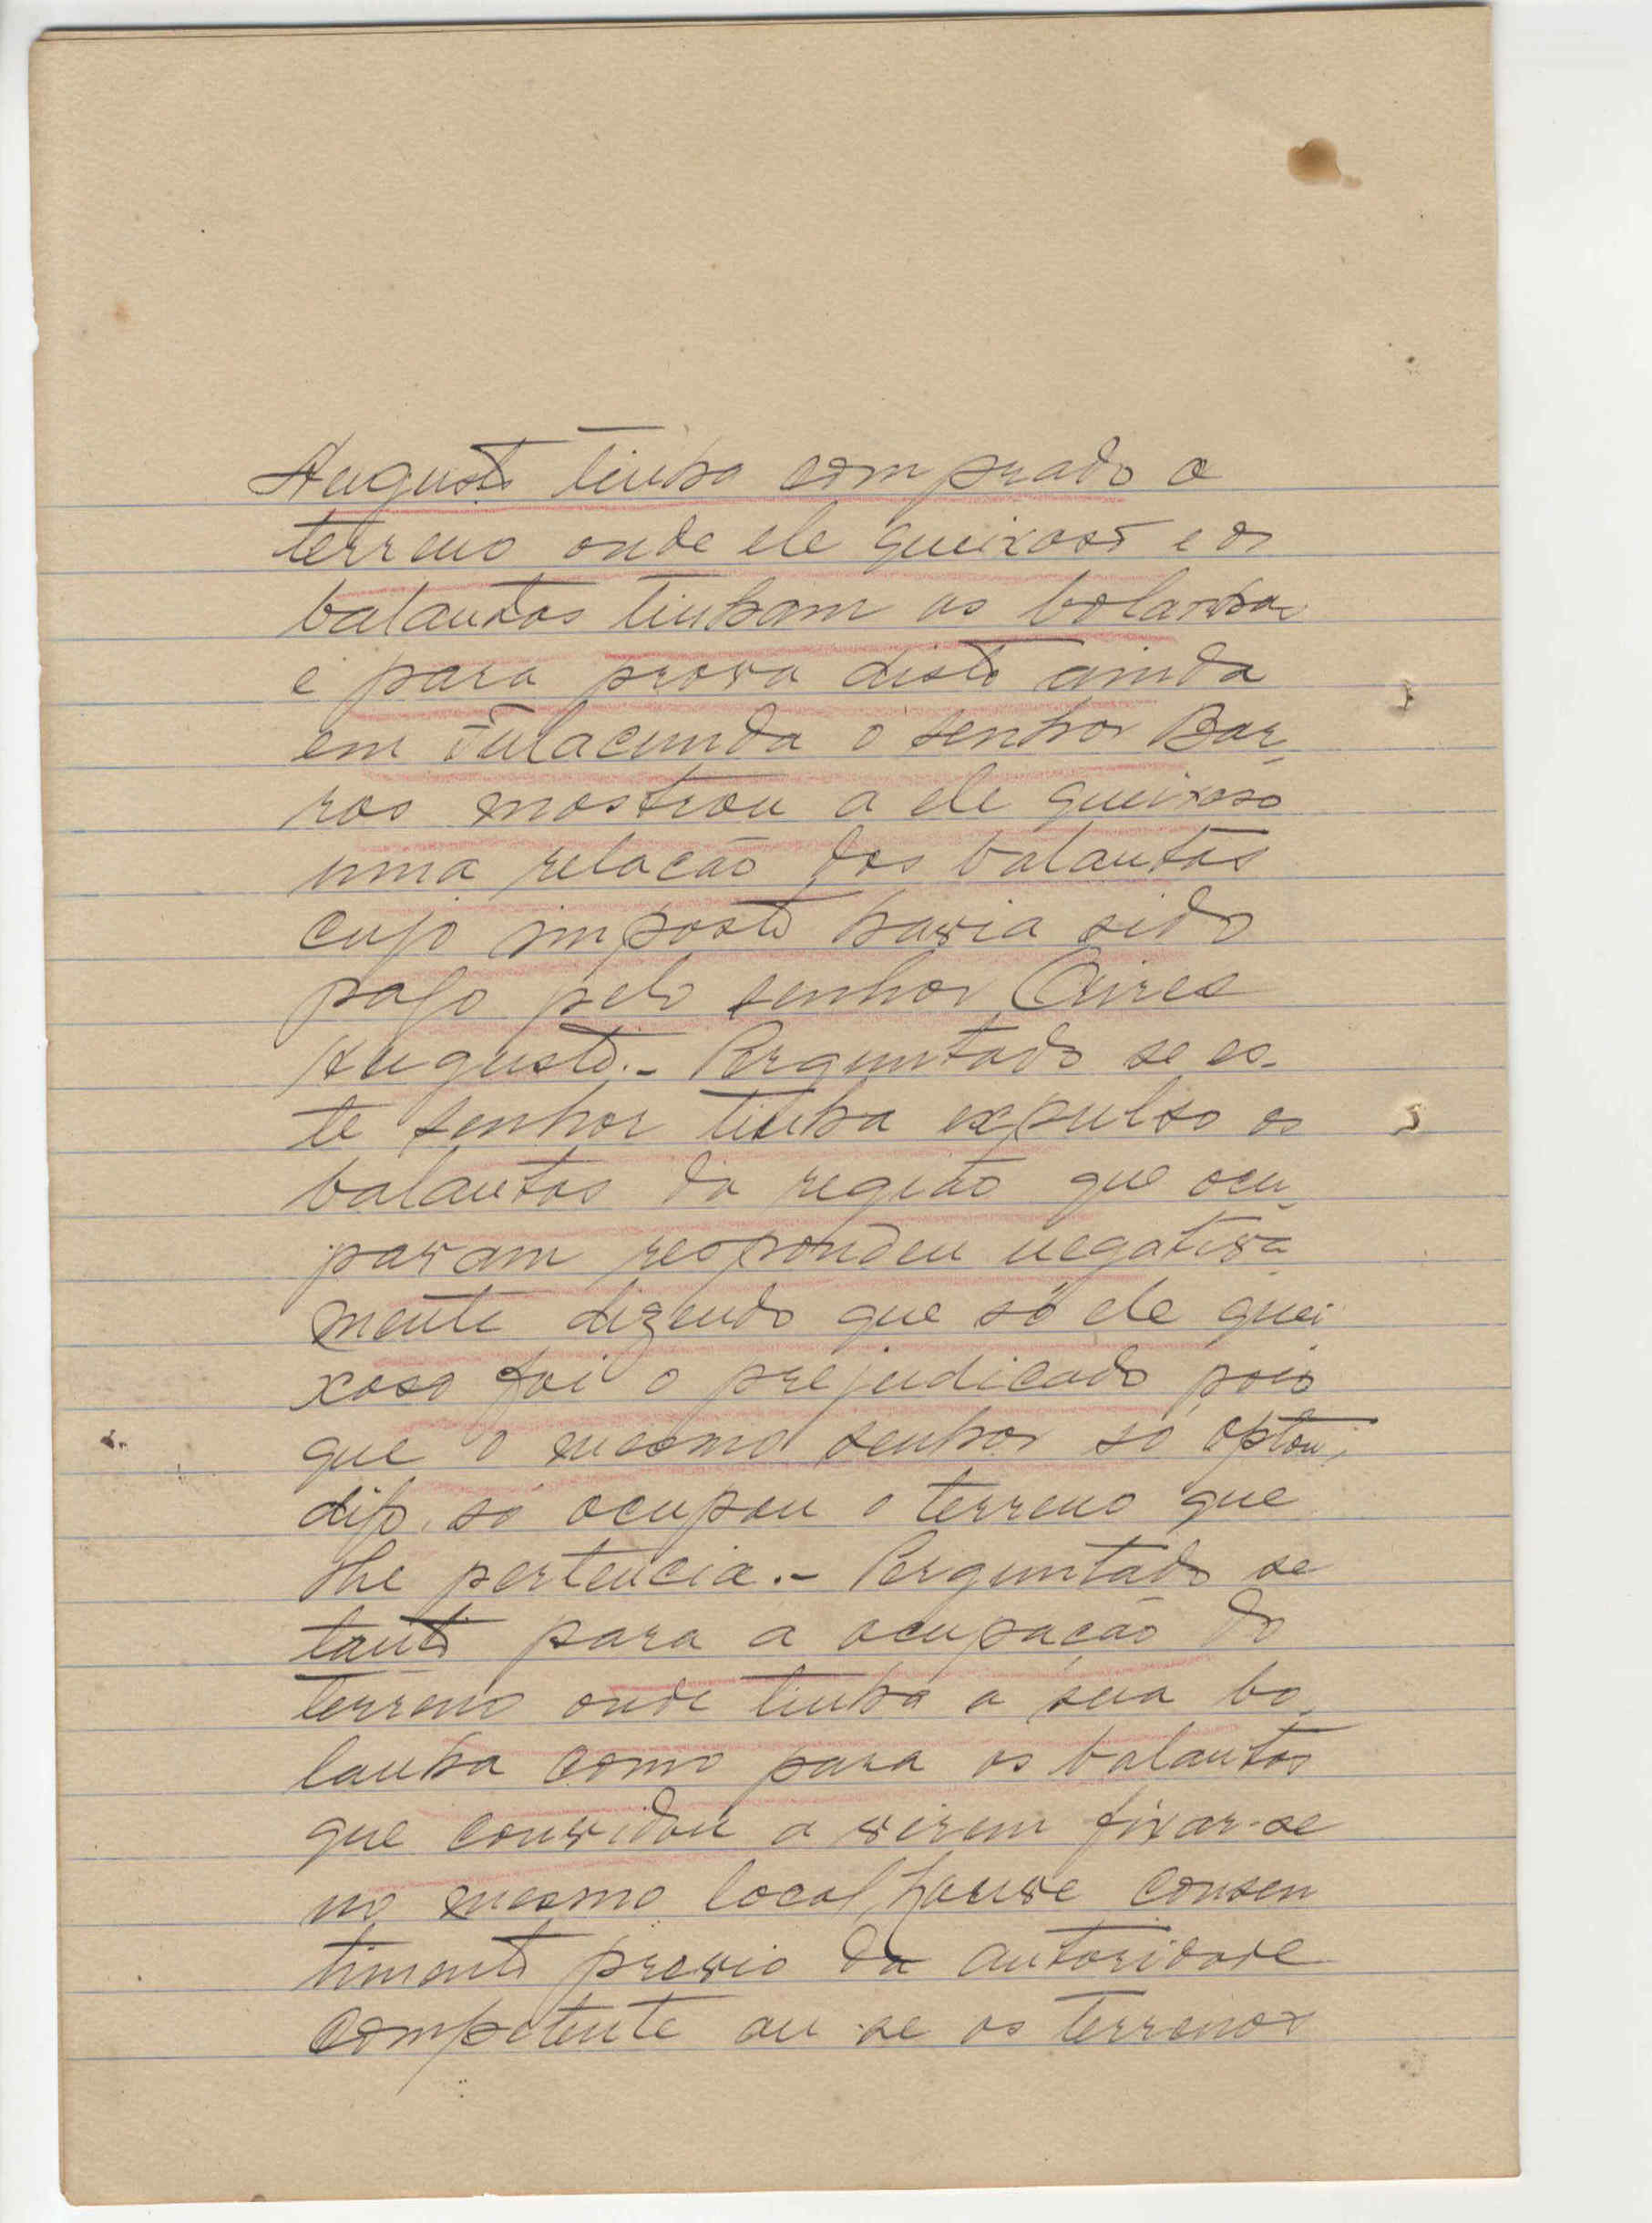 Augusto tinha comprado o
terreno onde ele queixoso e os
balantas tinham as bolanhas
e para prova disto ainda
em Fulacunda o senhor Bar-
ros mostrou a ele queixoso
uma relacão dos balantas
cujo imposto havia sido
pago pelo senhor Aires
Augusto.- Perguntado se es-
te senhor tinha expulso os
balantas da região que ocu-
pavam respondeu negativa-
mente dizendo que só ele quei-
xoso foi o prejudicado pois
que o mesmo senhor só optou,
digo, só ocupou o terreno que
lhe pertencia.- Perguntado se
tanto para a ocupacão do
terreno onde tinha a sua bo-
lanha como para os balantas
que convidou a virem fixar-se
no mesmo local houve consen
timento prévio da autoridade
competente ou se os terrenos